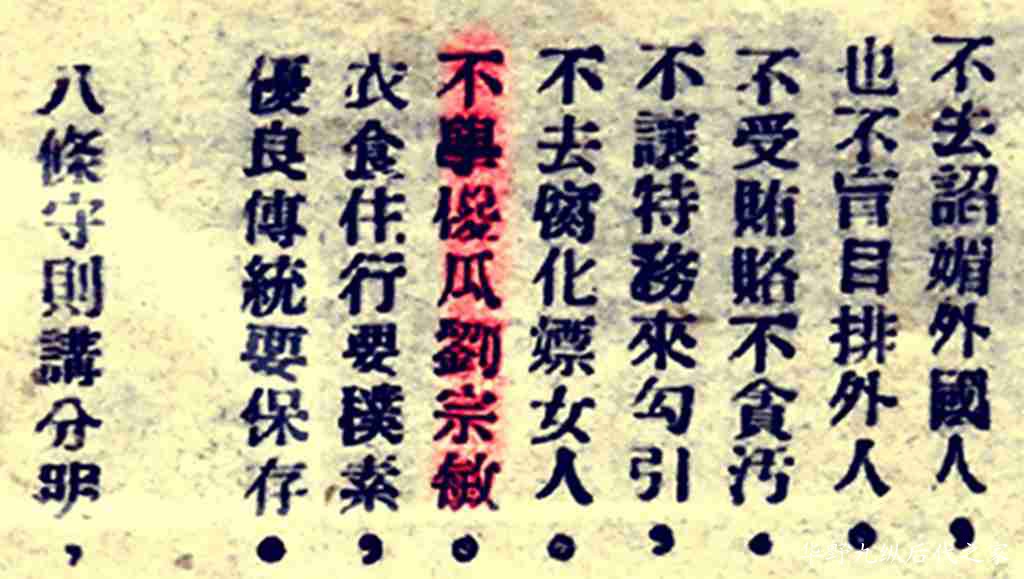 不去諂媚外國人，
也不盲目排外人。
不受賄賂不貪污。
不讓特務來勾引，
不去腐化嫖女人。
不學傻瓜劉宗敏。
衣食住行要樸素，
優良傳統要保存。
八條守則講分明，